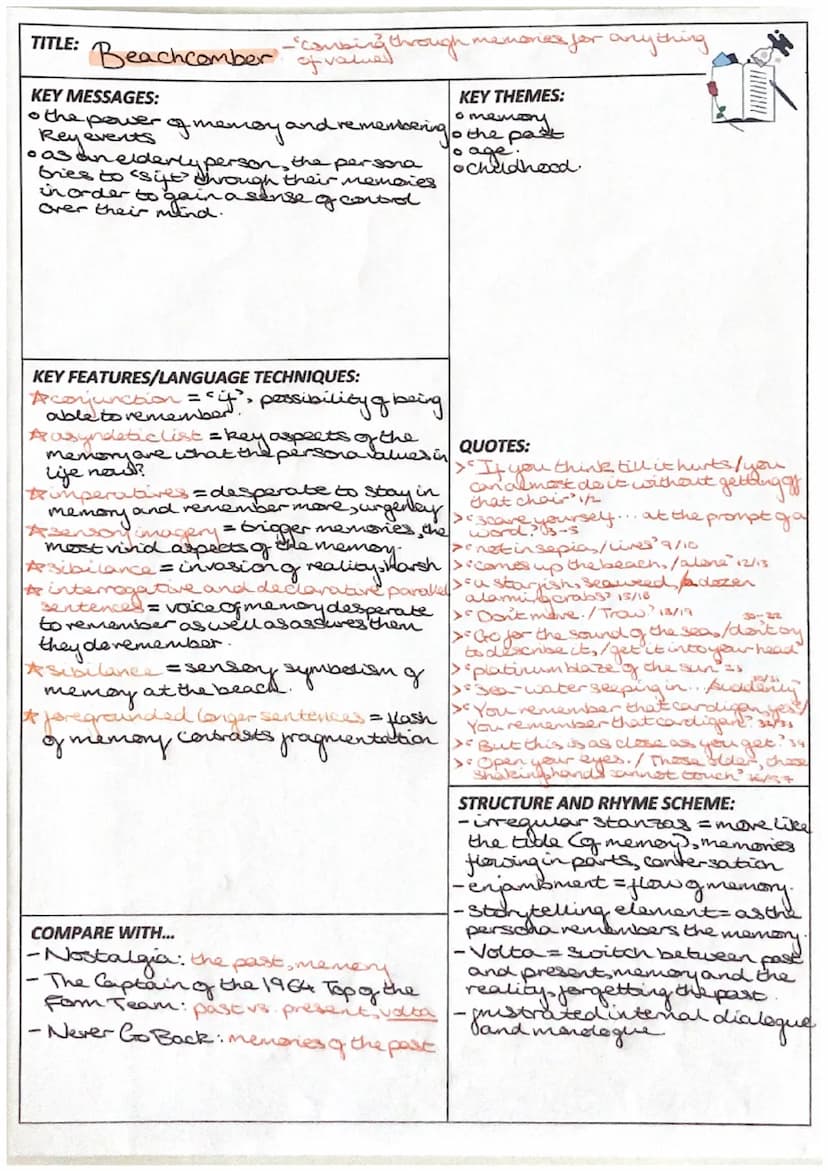 TITLE: Beachcomber - 'combing' through memories for anything
of value
KEY MESSAGES:
o the power of memory and remembering
key events
o as an elderly person, the persona
tries to 'sift' through their memories
in order to gain a sense of control
over their mind.
KEY THEMES:
o memory
o the past
o age.
o childhood.
KEY FEATURES/LANGUAGE TECHNIQUES:
☆ conjunction = 'if', possibility of being
able to remember.
☆ asyndetic list = key aspects of the
memory are what the persona values in
life now?
☆ imperatives = desperate to stay in
memory and remember more, urgency
☆ sensory imagery = trigger memories, the
most vivid aspects of the memory.
☆ sibilance = invasion of reality, harsh
☆ interrogative and declarative parallel
sentences = voice of memory desperate
to remember as well as assures them
they do remember.
☆ sibilance = sensory symbolism of
memory at the beach.
☆ foregrounded longer sentences = flash
of memory contrasts fragmentation
QUOTES:
> 'If you think till it hurts/you
can almost do it without getting off
that chair' 1/2
> 'scare yourself... at the prompt of a
word.' 3-5
> 'not in sepia, /lives' 9/10
> 'comes up the beach, /alone' 12/13
> 'a starfish, seaweed, /a dozen
alarming crabs' 15/16
> 'Don't move. / Trow.' 18/19
> 'Go for the sound of the sea, /don't try
to describe it, /get it into your head' 20-22
> 'platinum blaze of the sun' 23
> 'sea-water seeping in... /suddenly' 30/31
> 'You remember that cardigan, yes?/
You remember that cardigan.' 32/33
> 'But this is as close as you get.' 34
> 'Open your eyes. / Those older, those
shaking hands cannot touch' 36/37
STRUCTURE AND RHYME SCHEME:
- irregular stanzas = more like
the tide (of memory), memories
flowing in parts, conversation
- enjambment = flow of memory.
- storytelling element = as the
persona remembers the memory.
- Volta = switch between past
and present, memory and the
reality, forgetting the past.
- frustrated internal dialogue
and monologue
COMPARE WITH...
- Nostalgia: the past, memory
- The Captain of the 1964 Top of the
Form Team: past vs. present, volta
- Never Go Back: memories of the past